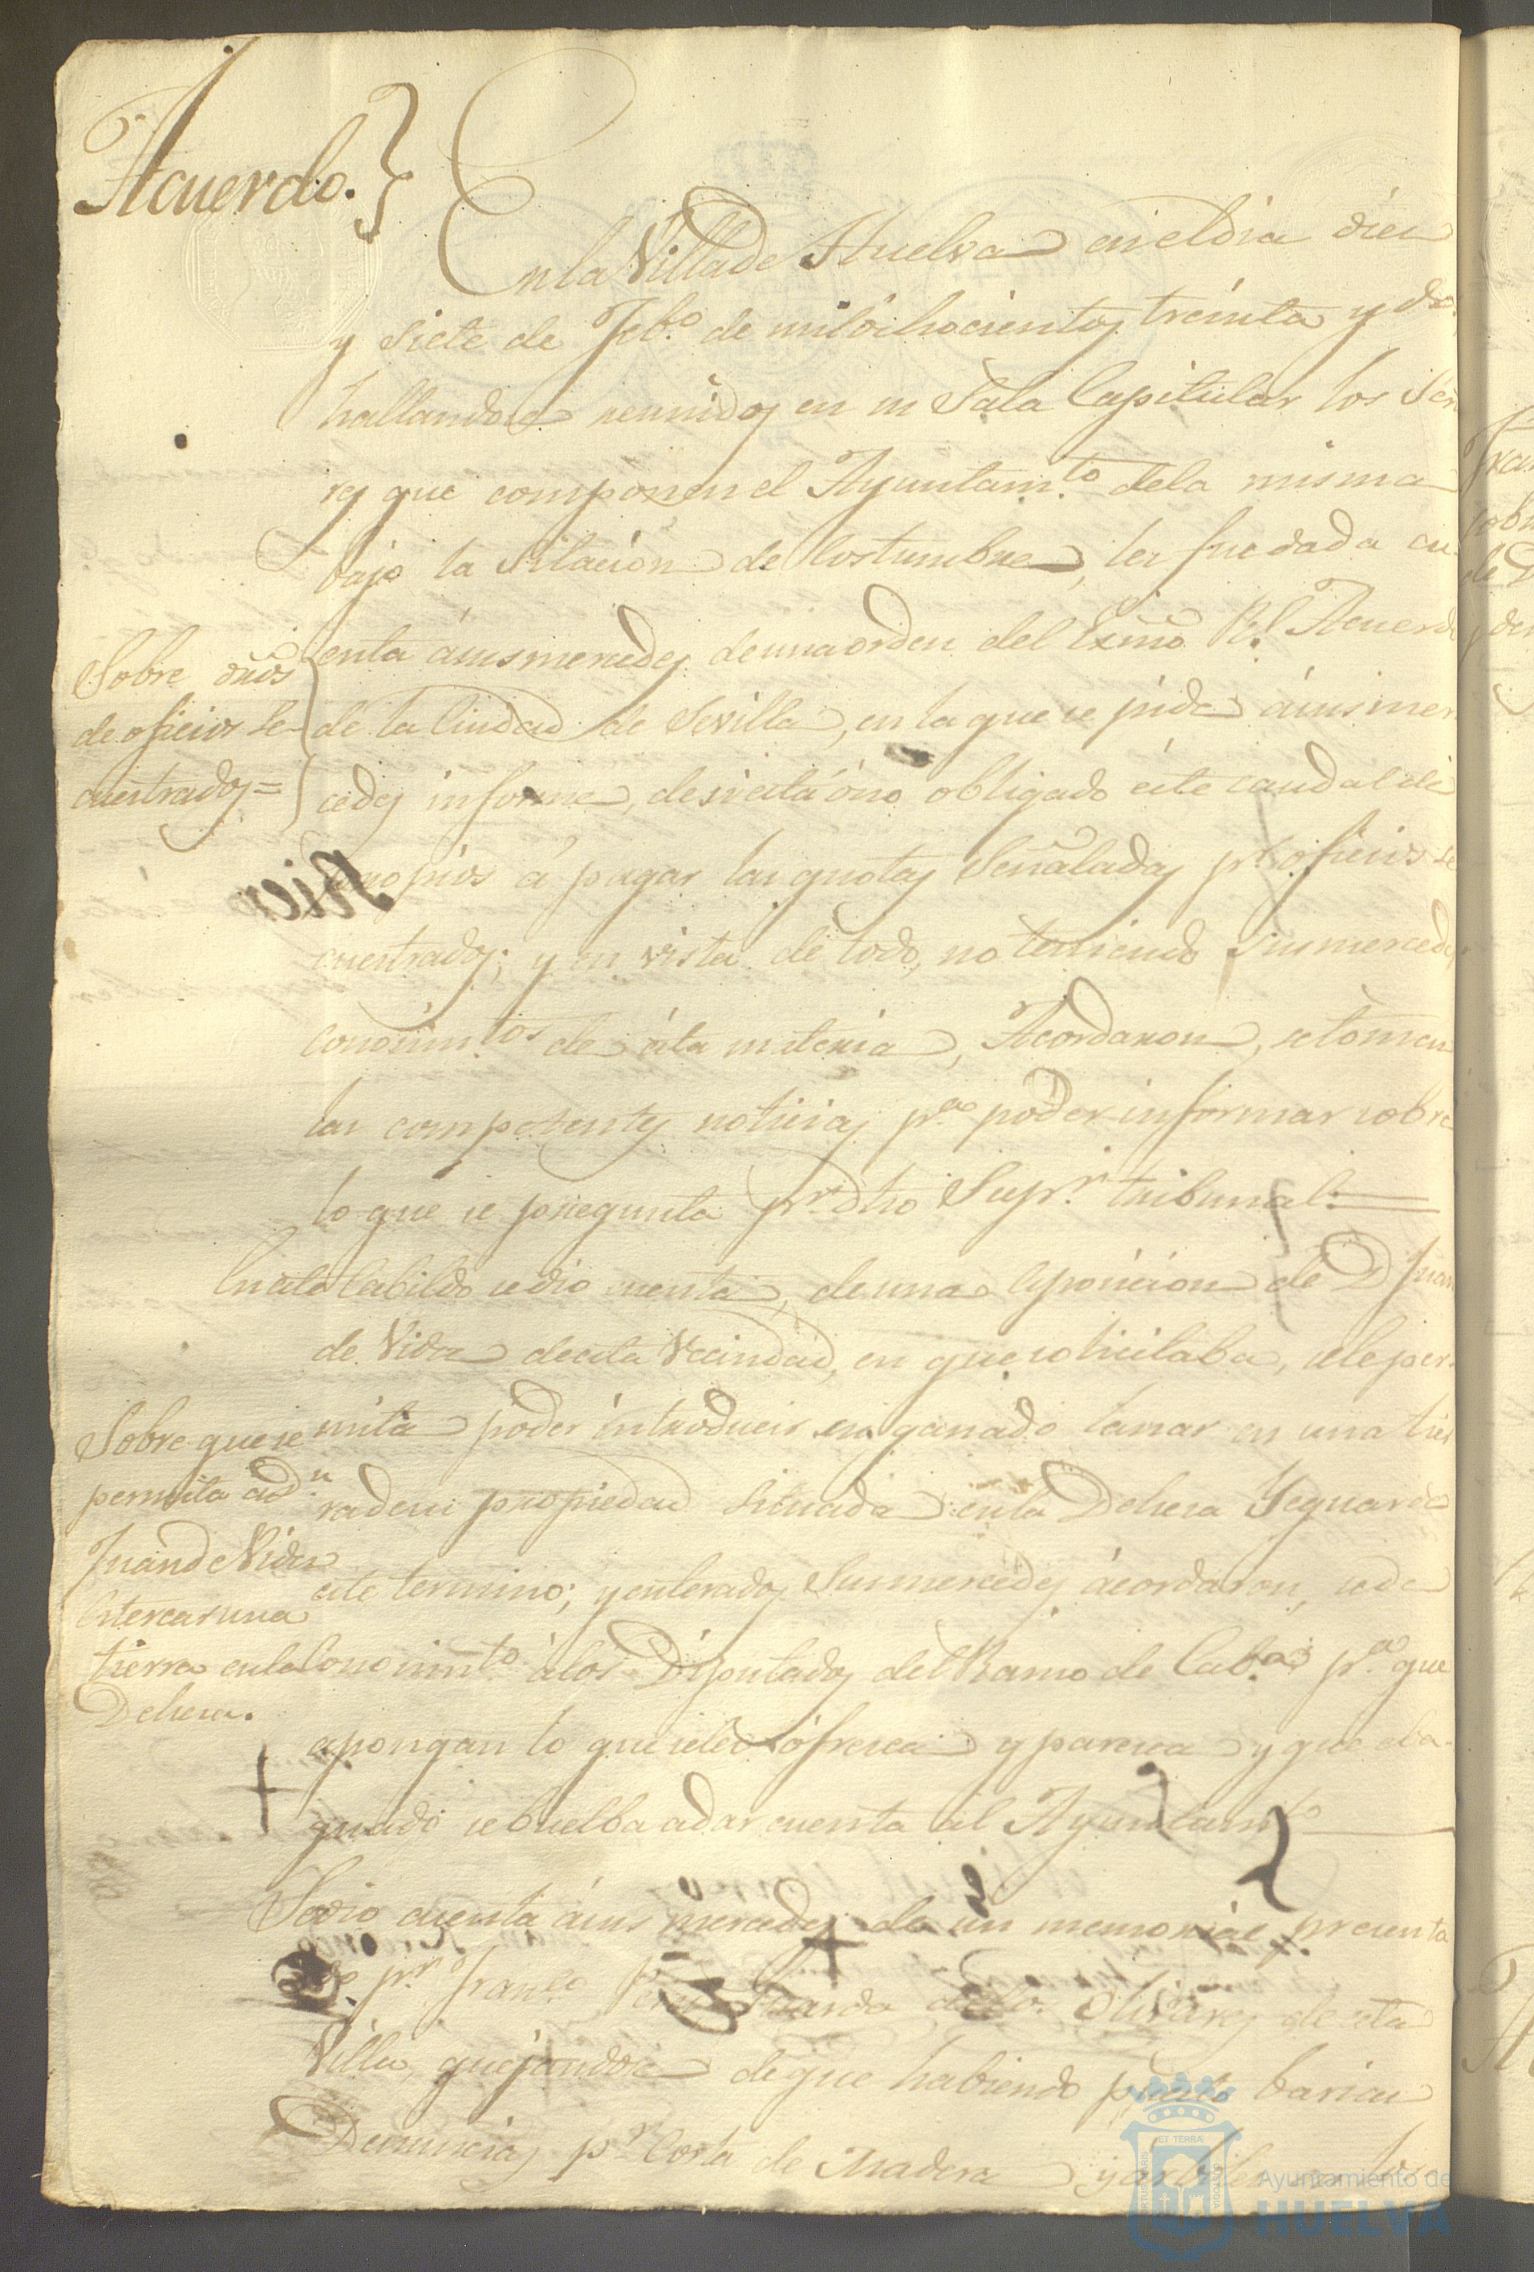 Acuerdo.}
En la Villa de Huelva en el dia diez
y siete de Feb.o de mil óchocientos treinta y dos
hallandose reunidos en su Sala Capitular los Seño
res que componen el Ayuntam.to de la misma
bajo la Sitación de Costumbre, les fue dada cu-
enta ásus mercedes de una orden del Exmo R.l Acuerdo
Sobre
de oficios Se-
cuestrados=
de la Ciudad de Sevilla, en la que se pide ásus mer
cedes informe, de si está óno obligado éste caudal de
propios á pagar las quotas Señaladas p.r oficios se
cuestrados; y en vista de todo, no teniendo Sus mercedes
conosim.tos de ésta materia, Acordaron, se tomen
las competentes noticias p.a poder informar sobre
lo que se pregunta p.r dho Sup.r tribunal.
En este Cabildo se dio cuenta, de una esposicion de D Juan
de Vides de esta Vecindad, en que solicitaba, se le per-
mita poder introducir su ganado lanar en una tier
Sobre que se
permita a D.n
Juan de Vides
una
tierra en la
Dehesa.
ra de su propiedad situada en la Dehesa Yeguar de
este termino; y enterados Sus mercedes ácordaron, se de
Conosimt.o á los Diputados del Ramo de Cab.a p.a que
espongan lo que se les ófresca y paresca y que eba-
quado se buelba a dar cuenta al Ayuntam.to
Se dio cuenta ásus mercedes de un memorial presenta
do p.r Fran.co Guarda de los Olivares de esta
Villa, quejandose de que habiendo puesto barias
Denuncias p.r Corta de Madera y
Ayuntamiento de
HUELVA